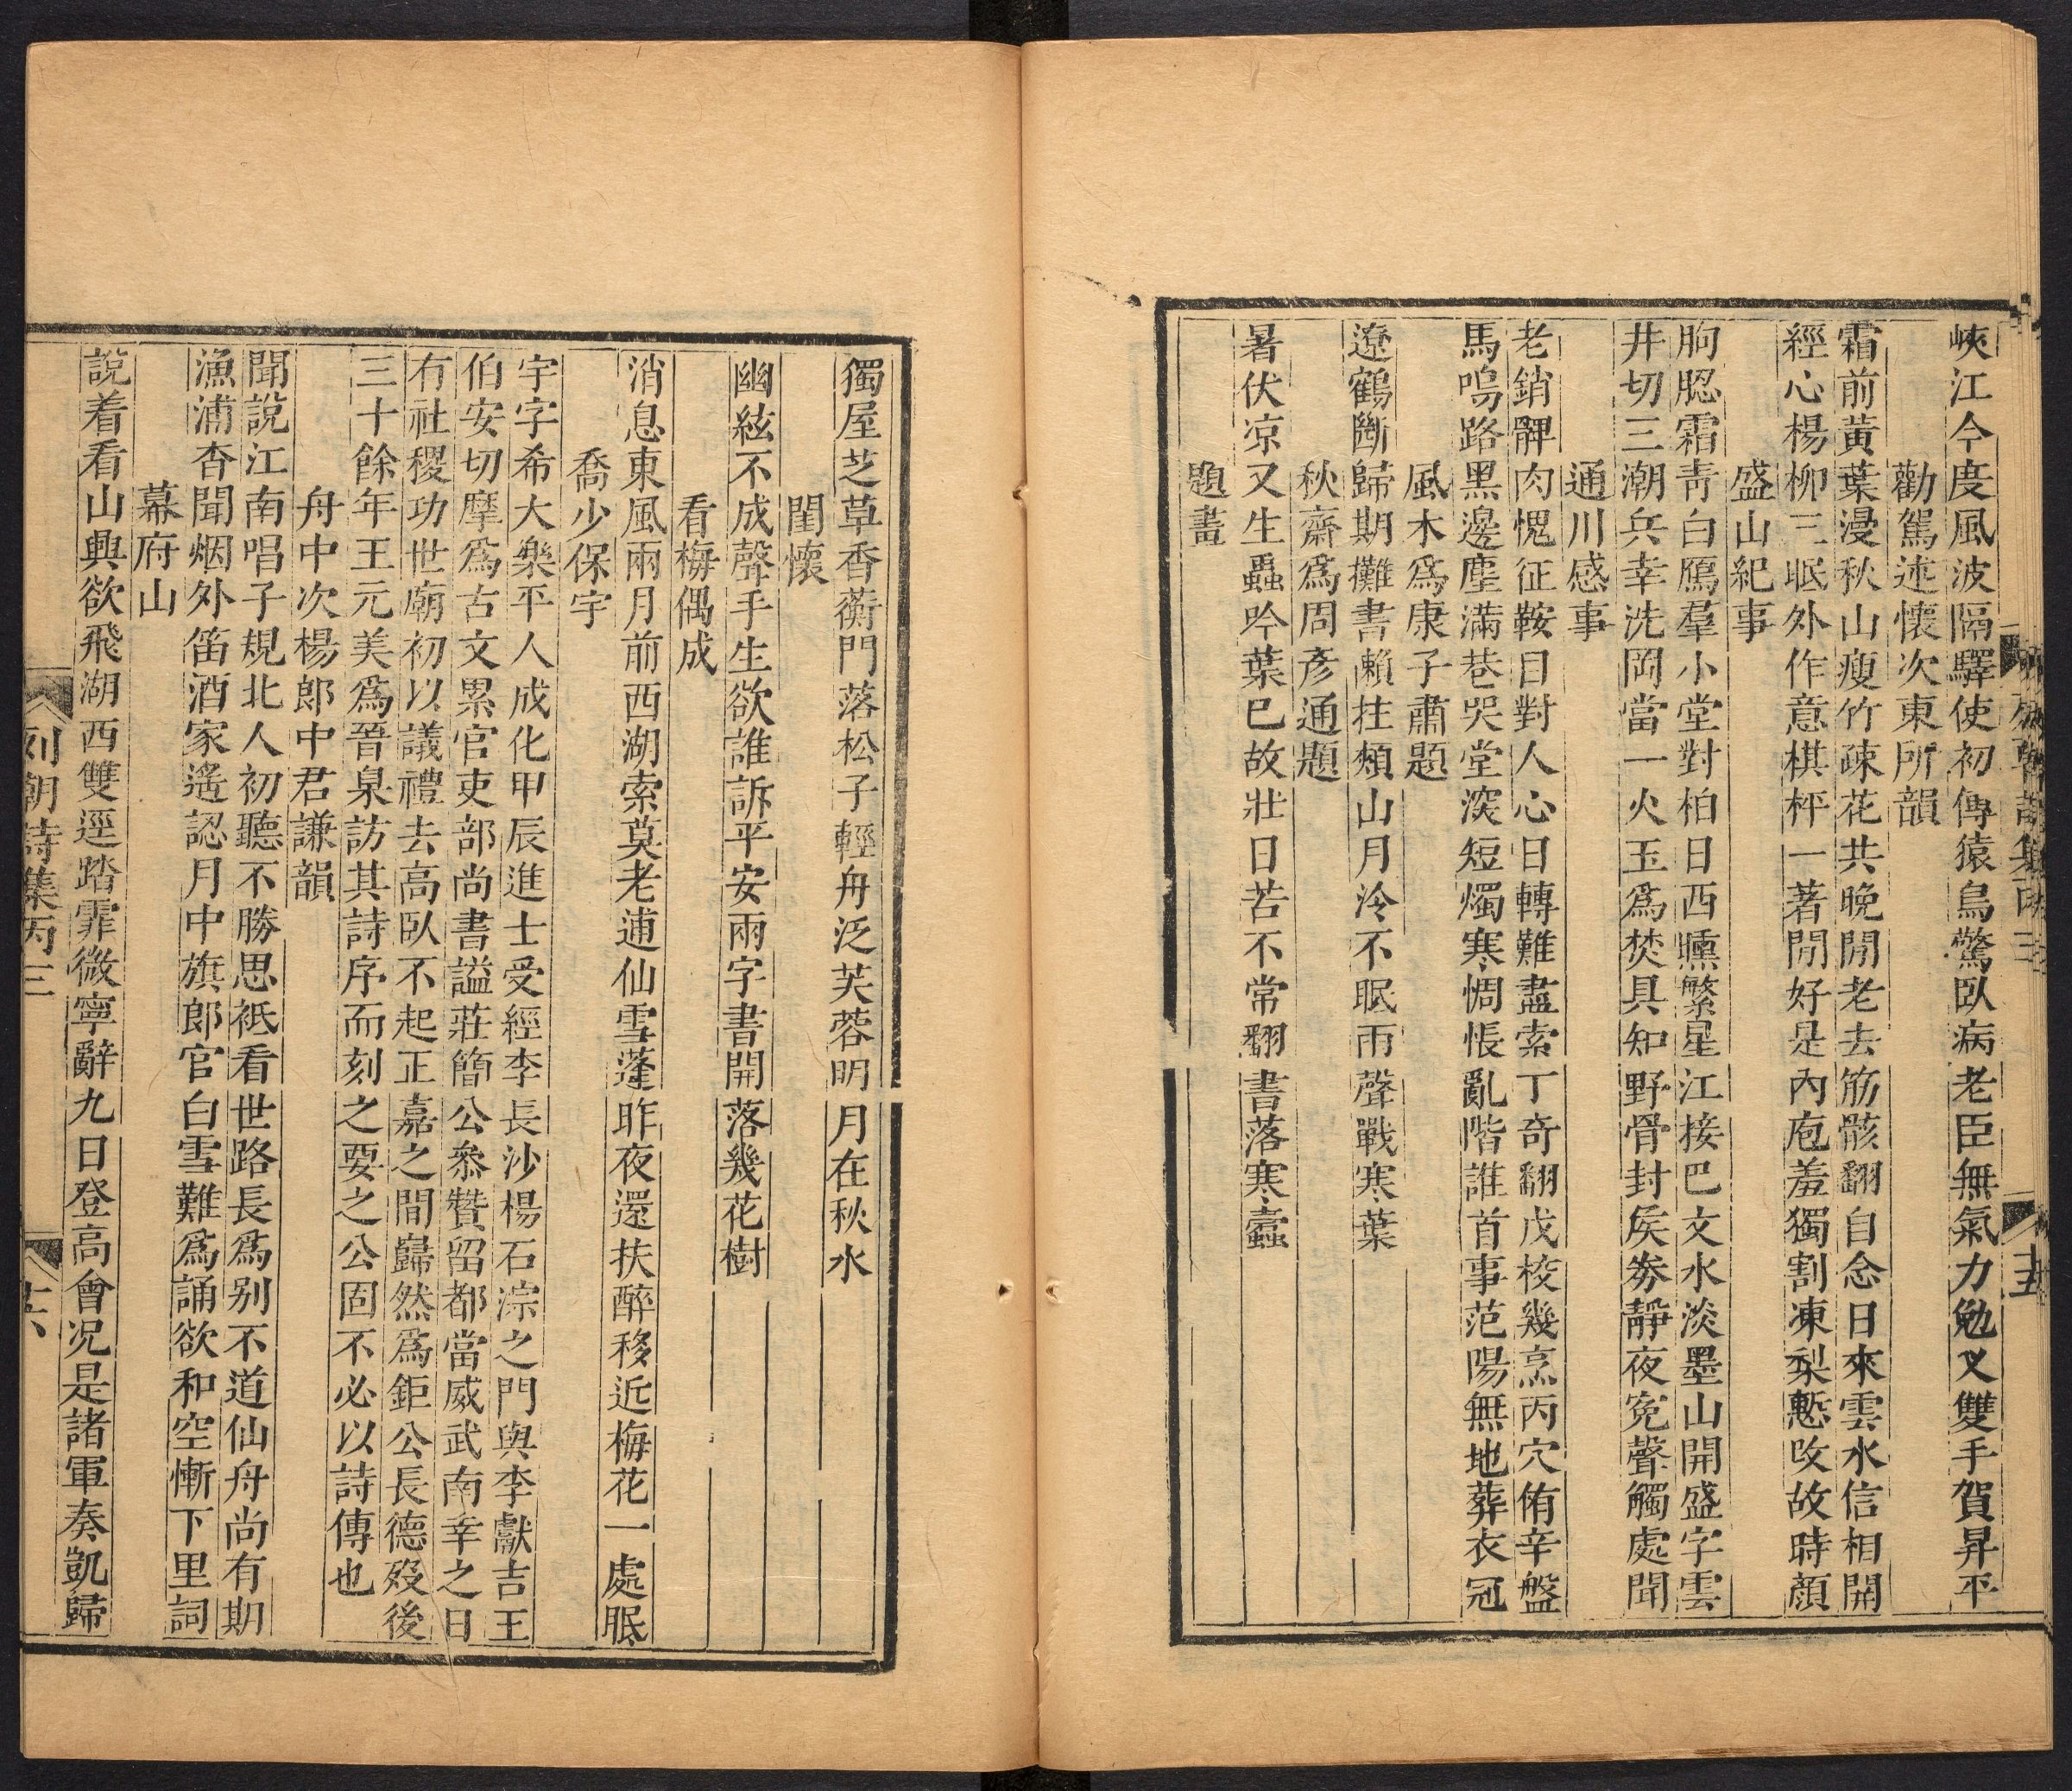 峽江今度風波隔驛使初傳猿鳥驚臥病老臣無氣力勉叉雙手賀昇平
勸駕述懷次東所韻
霜前黃葉漫秋山瘦竹疎花共晚閒老去筋骸翻自念日來雲水信相開
經心楊柳三眠外作意棋枰一著閒好是內庖羞獨割凍梨慙改故時顏
盛山紀事
朐䏰霜靑白鴈羣小堂對柏日西曛繁星江接巴文水淡墨山開盛字雲
井切三潮兵幸洗岡當一火玉爲焚具知野骨封矦劵靜夜寃聲觸處聞
通川感事
老銷髀肉愧征鞍日對人心日轉難盡索丁奇翻戊校幾烹丙穴侑辛盤
馬鳴路黑邊塵滿巷哭堂深短燭寒惆悵亂階誰首事范陽無地葬衣冠
風木爲康子肅題
遼鶴斷歸期攤書懶拄頰山月冷不眠雨聲戰寒葉
秋齋爲周彥通題
暑伏凉又生蟲吟葉已故壯日苦不常翻書落寒蠧
題畫
獨屋芝草香蘅門落松子輕舟泛芙蓉明月在秋水
閨懷
幽絃不成聲手生欲誰訴平安兩字書開落幾花樹
看梅偶成
消息東風兩月前西湖索莫老逋仙雪蓬昨夜還扶醉移近梅花一處眠
喬少保宇
宇字希大樂平人成化甲辰進士受經李長沙楊石淙之門與李獻吉王
伯安切摩爲古文累官吏部尚書謚莊簡公叅贊留都當威武南幸之日
有社稷功世廟初以議禮去高臥不起正嘉之間巋然爲鉅公長德歿後
三十餘年王元美爲晉臬訪其詩序而刻之要之公固不必以詩傳也
舟中次楊郎中君謙韻
聞說江南唱子規北人初聽不勝思祇看世路長爲别不道仙舟尚有期
漁浦杳聞烟外笛酒家遙認月中旗郎官白雪難爲誦欲和空慚下里詞
幕府山
說着看山興欲飛湖西雙逕踏霏微寧辭九日登高會况是諸軍奏凱歸
列朝詩集丙三
十六